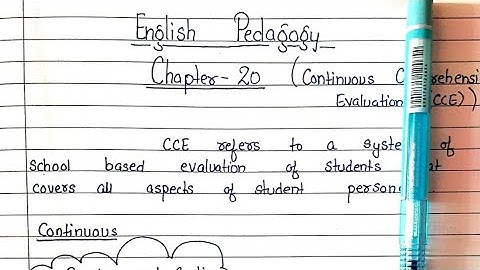 English Pedagogy
Chapter-20 (Continuous
Evaluation (CCE))
CCE refers to a system of
School based evaluation of students
covers all aspects of student
Continuous